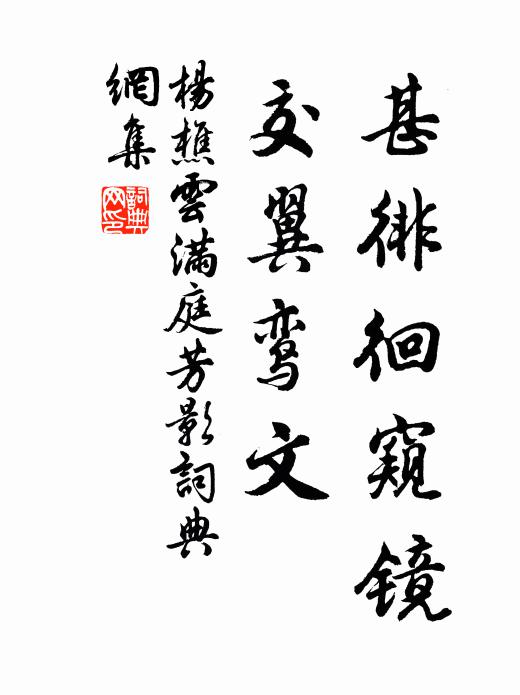 甚徘徊窥镜
交翼鸾文
楊樵雲满庭芳影詞典
網集
詞典
网印